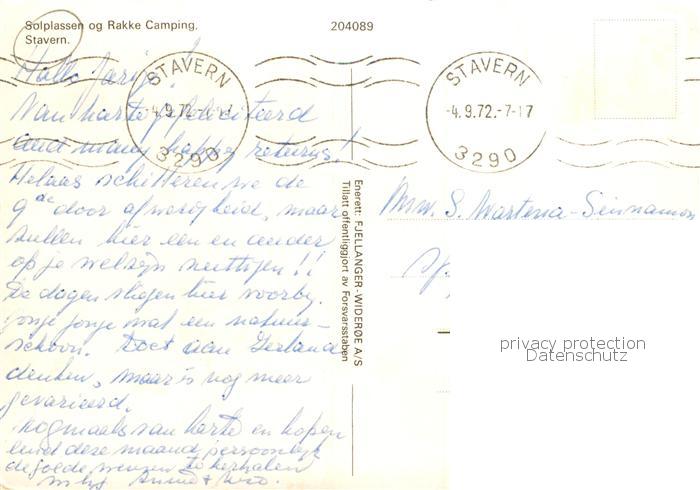 Solplassen og Rakke Camping,
Stavern.
204089
Hallo Jarig!
Van harte gefeliciteerd
and many happy returns!
Helaas schitteren we de
9de door afwezigheid, maar
zullen hier een en ander
op je welzijn nuttigen!!
De dagen vliegen hier voorby.
jonge jonge wat een natuur-
schoon. Doet aan Ierland
denken, maar is nog meer
gevarieerd.
Nogmaals van harte en hopen
eind deze maand persoonlijk
de goede wensen te herhalen
STAVERN
-4.9.72.-7-17
3290
STAVERN
-4.9.72.-7-17
3290
Enerett: FJELLANGER-WIDERØE A/S
Tillatt offentliggjort av Forsvarsstaben
Mw. S. Wartena-
privacy protection
Datenschutz